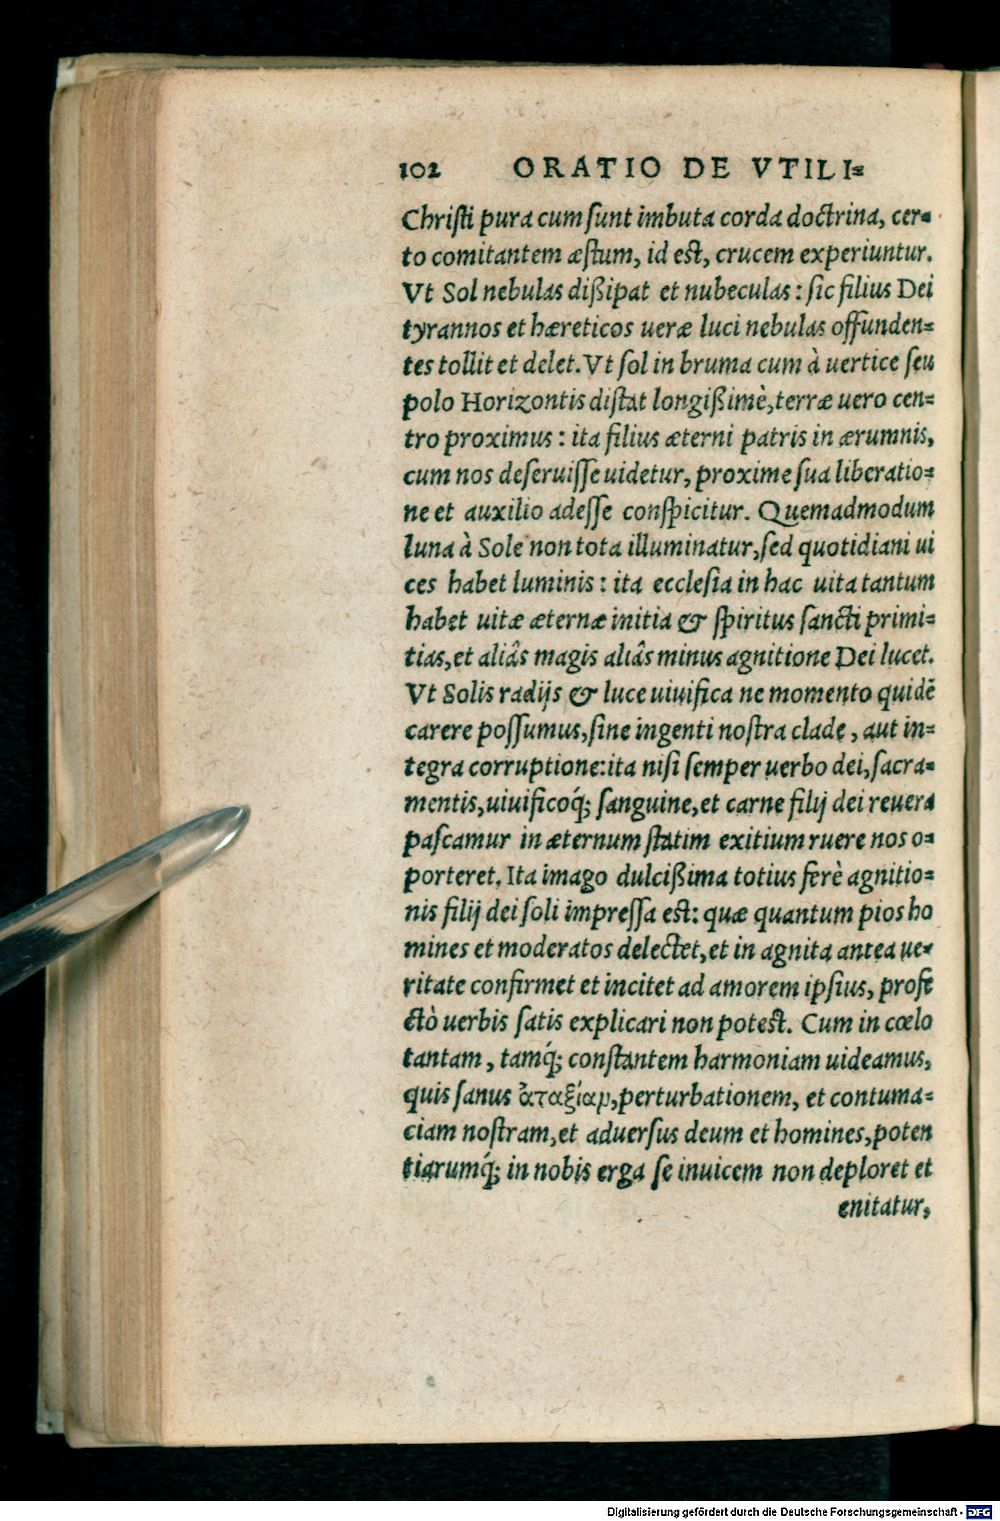 102 ORATIO DE VTILI=
Christi pura cum sunt imbuta corda doctrina, cer=
to comitantem æstum, id est, crucem experiuntur.
Vt Sol nebulas dißipat et nubeculas: sic filius Dei
tyrannos et hæreticos ueræ luci nebulas offunden=
tes tollit et delet. Vt sol in bruma cum à uertice seu
polo Horizontis distat longißimè, terræ uero cen=
tro proximus: ita filius æterni patris in ærumnis,
cum nos deseruisse uidetur, proxime sua liberatio=
ne et auxilio adesse conspicitur. Quemadmodum
luna à Sole non tota illuminatur, sed quotidiani ui
ces habet luminis: ita ecclesia in hac uita tantum
habet uitæ æternæ initia & spiritus sancti primi=
tias, et aliâs magis aliâs minus agnitione Dei lucet.
Vt Solis radijs & luce uiuifica ne momento quidẽ
carere possumus, sine ingenti nostra clade, aut in=
tegra corruptione: ita nisi semper uerbo dei, sacra=
mentis, uiuificoq́; sanguine, et carne filij dei reuera
pascamur in æternum statim exitium ruere nos o=
porteret. Ita imago dulcißima totius ferè agnitio=
nis filij dei soli impressa est: quæ quantum pios ho
mines et moderatos delectet, et in agnita antea ue=
ritate confirmet et incitet ad amorem ipsius, profe
ctò uerbis satis explicari non potest. Cum in cœlo
tantam, tamq́; constantem harmoniam uideamus,
quis sanus ἀταξίαν, perturbationem, et contuma=
ciam nostram, et aduersus deum et homines, poten
tiarumq́; in nobis erga se inuicem non deploret et
enitatur,
Digitalisierung gefördert durch die Deutsche Forschungsgemeinschaft - DFG